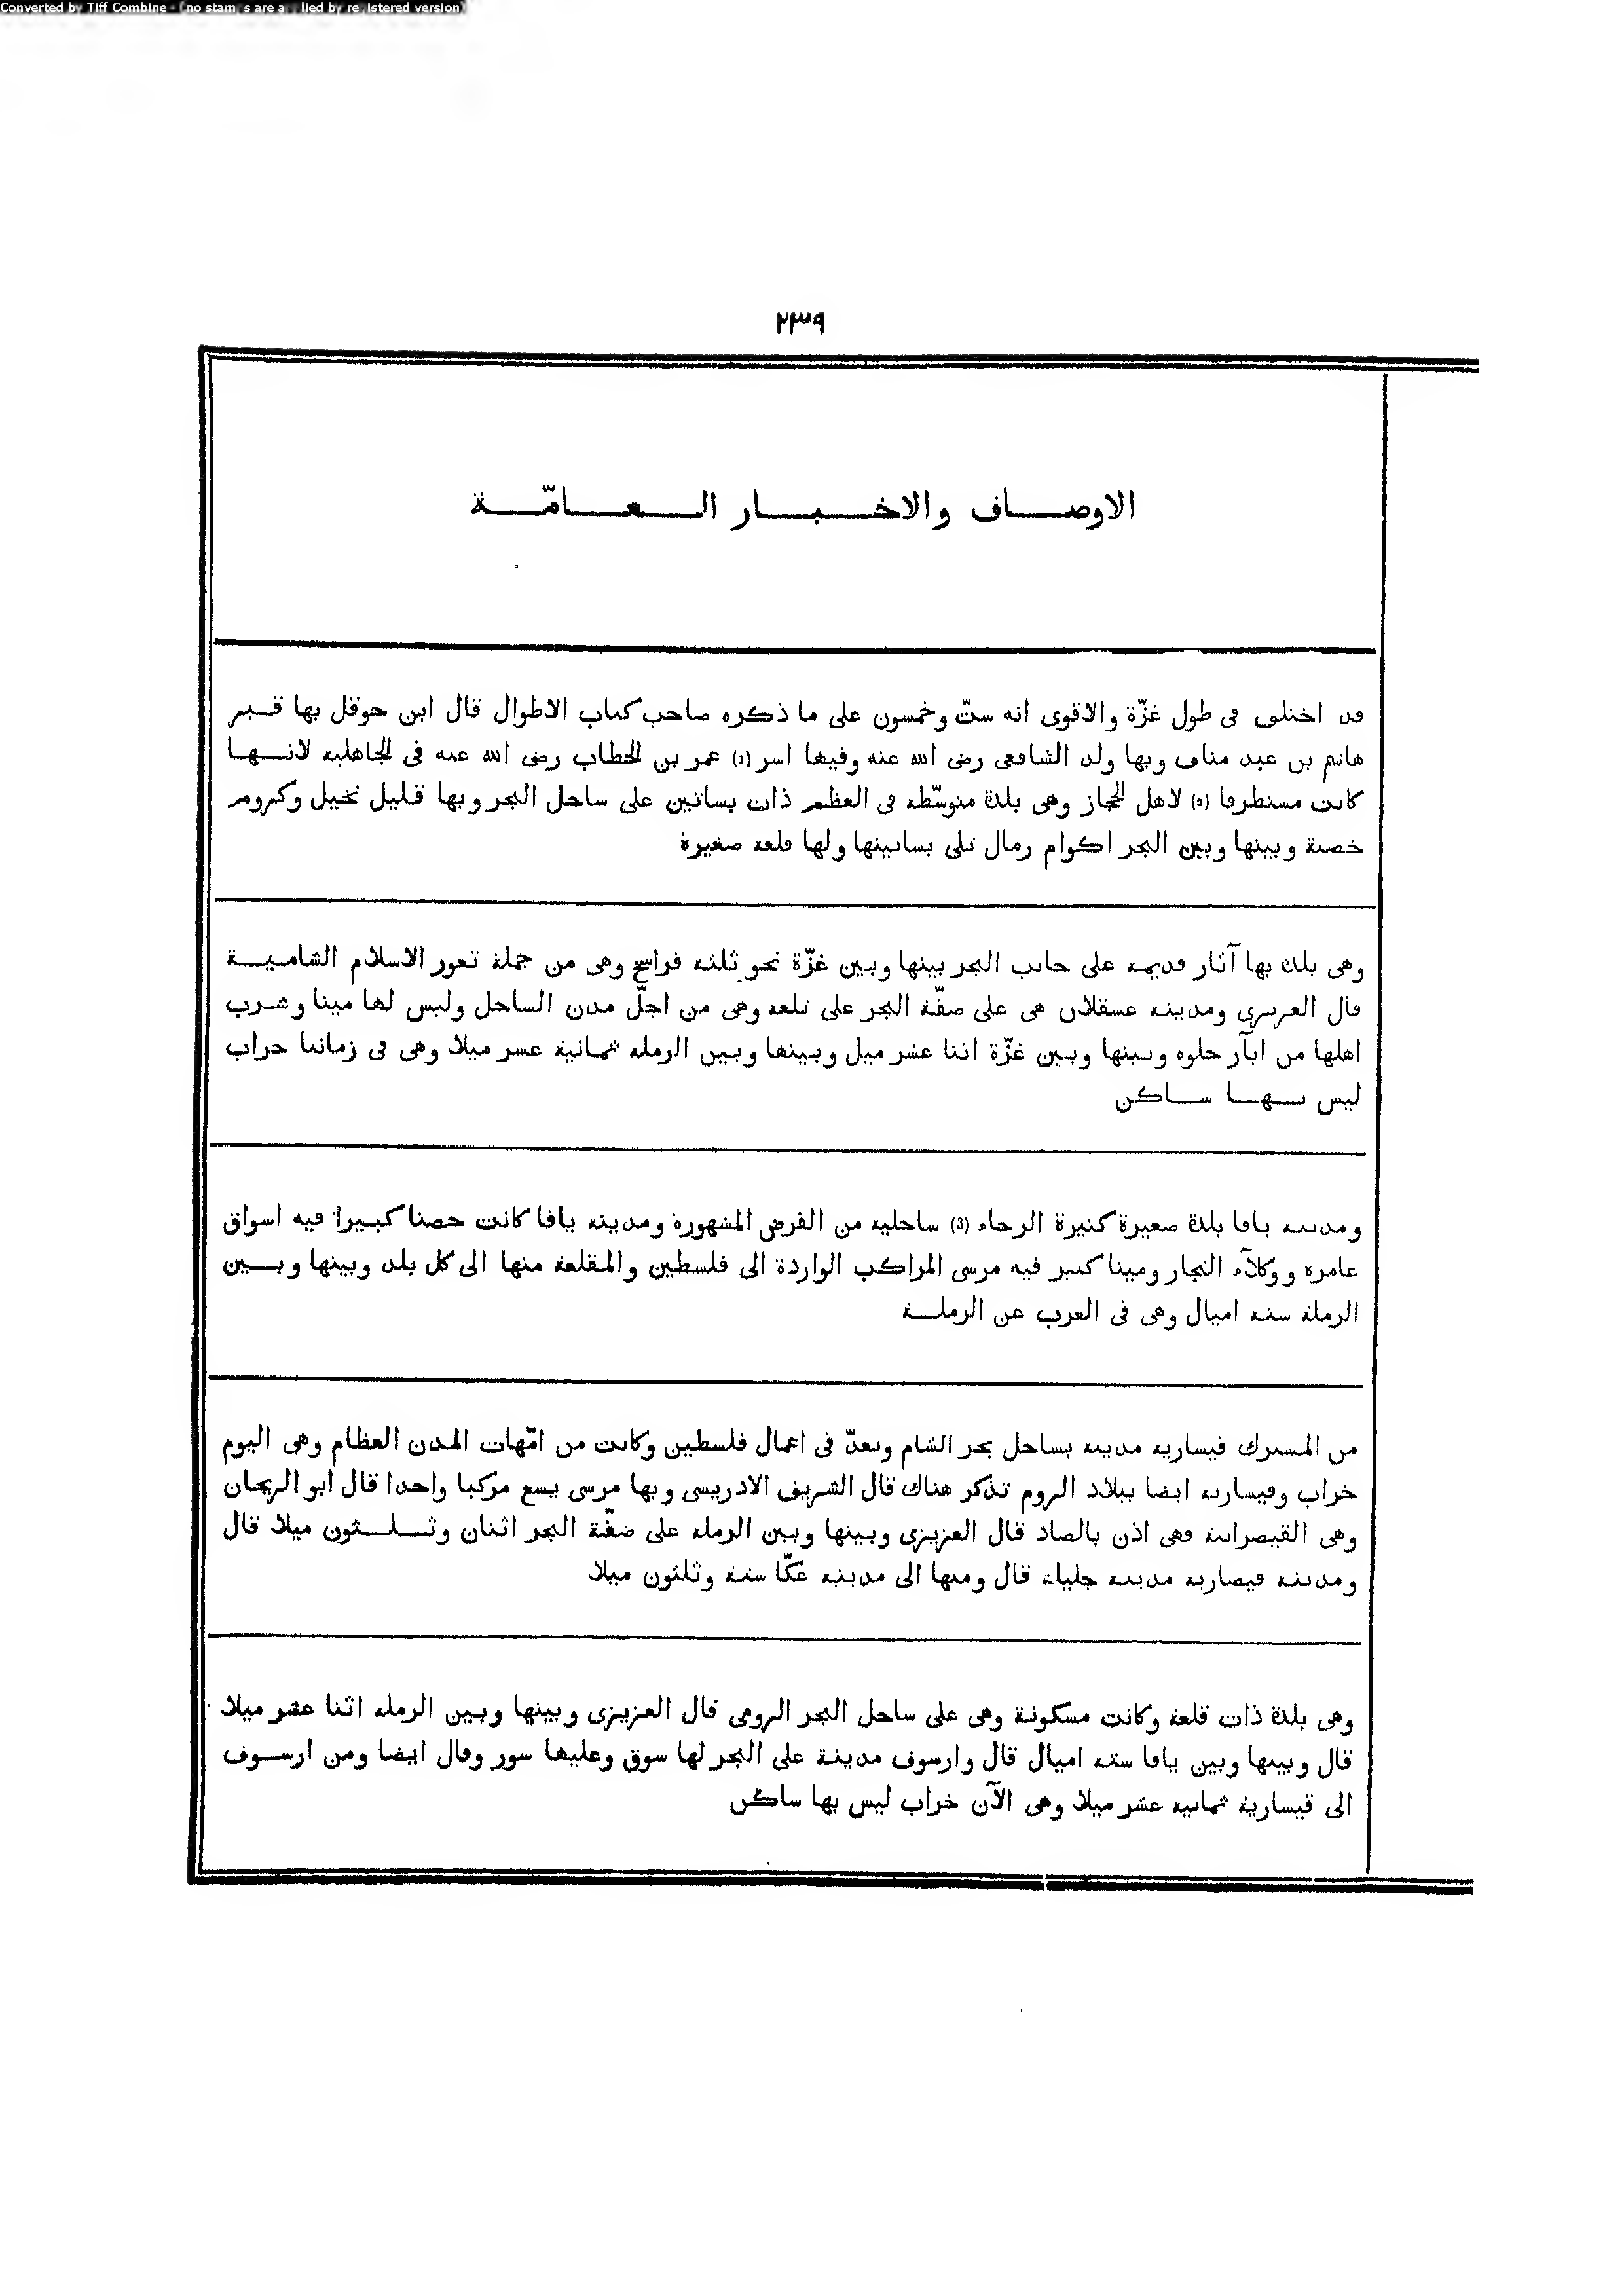 Converted by Tiff Combine - (no stamps are applied by registered version)
٢٣٩
الاوصاف والاخبار العامّة
قد اختلف فى طول غزّة والاقوى انه ستّ وخمسون على ما ذكره صاحب كتاب الاطوال قال ابن حوقل بها قبر
هاشم بن عبد مناف وبها ولد الشافعى رضى الله عنه وفيها اسر (1) عمر بن الخطاب رضى الله عنه فى الجاهلية لانها
كانت مستطرقا (2) لاهل الحجاز وهى بلدة متوسّطة فى العظم ذات بساتين على ساحل البحر وبها قليل نخيل وكروم
خصبة وبينها وبين البحر اكوام رمال تلى بساتينها ولها قلعة صغيرة
وهى بلدة بها آثار قديمة على جانب البحر بينها وبين غزّة نحو ثلثة فراسخ وهى من جملة ثغور الاسلام الشامية
قال العزيزى ومدينة عسقلان هى على ضفّة البحر على تلعة وهى من اجلّ مدن الساحل وليس لها مينا وشرب
اهلها من ابآر حلوة وبينها وبين غزّة اثنا عشر ميل وبينها وبين الرملة ثمانية عشر ميلا وهى فى زماننا خراب
ليس بها ساكن
ومدينة يافا بلدة صغيرة كثيرة الرخاء (3) ساحلية من الفرض المشهورة ومدينة يافا كانت حصنا كبيرا فيه اسواق
عامرة ووكلآء التجار ومينا كبير فيه مرسى المراكب الواردة الى فلسطين والمقلعة منها الى كل بلد وبينها وبين
الرملة ستة اميال وهى فى الغرب عن الرملة
من المشترك قيسارية مدينة بساحل بحر الشام وتعدّ فى اعمال فلسطين وكانت من امّهات المدن العظام وهى اليوم
خراب وقيسارية ايضا ببلاد الروم تذكر هناك قال الشريف الادريسى وبها مرسى يسع مركبا واحدا قال ابو الريحان
وهى القيصرانية فهى اذن بالصاد قال العزيزى وبينها وبين الرملة على ضفّة البحر اثنان وثلثون ميلا قال
ومدينة قيصارية مدينة جليلة قال ومنها الى مدينة عكّا ستة وثلثون ميلا
وهى بلدة ذات قلعة وكانت مسكونة وهى على ساحل البحر الرومى قال العزيزى وبينها وبين الرملة اثنا عشر ميلا
قال وبينها وبين يافا ستة اميال قال وارسوف مدينة على البحر لها سوق وعليها سور وقال ايضا ومن ارسوف
الى قيسارية ثمانية عشر ميلا وهى الآن خراب ليس بها ساكن